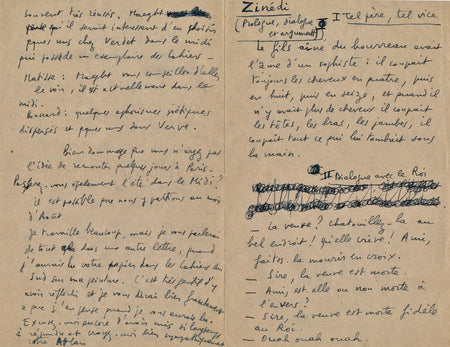 souvent très réussis. Maeght
qu'il serait intéressant d'en choisir
qques uns chez Verdet dans le midi
qui possède un exemplaire des Cahiers –
Matisse : Maeght vous conseiller d'aller
le voir, il est actuellement dans le
midi.
Bonnard : quelques aphorismes poétiques
dispersés et qques uns dans Verve.
Bien dommage que vous n'ayez pas
l'idée de remonter quelques jours à Paris.
vous également l'été dans le Midi ?
il est possible que nous y partions au mois
d'Août.
Je travaille beaucoup, mais je vous parlerai
de tout dans une autre lettre, quand
j'aurai lu votre papier dans les Cahiers du
Sud sur ma peinture. C'est très gentil d'y
avoir réfléchi et je vous dirai bien franchement
ce que j'en pense quand je vous aurai lu.
Excusez-moi d'avoir mis si longtemps
à répondre et croyez-moi bien sympathiquement
votre Atlan
Zinédi
(Prologue, dialogue
et argument)
I Tel père, tel vice
Le fils aîné du bourreau avait
l'âme d'un sophiste : il coupait
toujours les cheveux en quatre, puis
en huit, puis en seize, et quand il
n'y avait plus de cheveux il coupait
les têtes, les bras, les jambes, il
coupait tout ce qui lui tombait sous
la main.
II Dialogue avec le Roi
– La veuve ? Chatouillez-la au
bel endroit ! qu'elle crève ! Ami,
faites-la mourir en croix.
– Sire, la veuve est morte.
– Ami, est-elle ou non morte à
l'envers ?
– Sire, la veuve est morte fidèle
au Roi.
– Ouah ouah ouah.